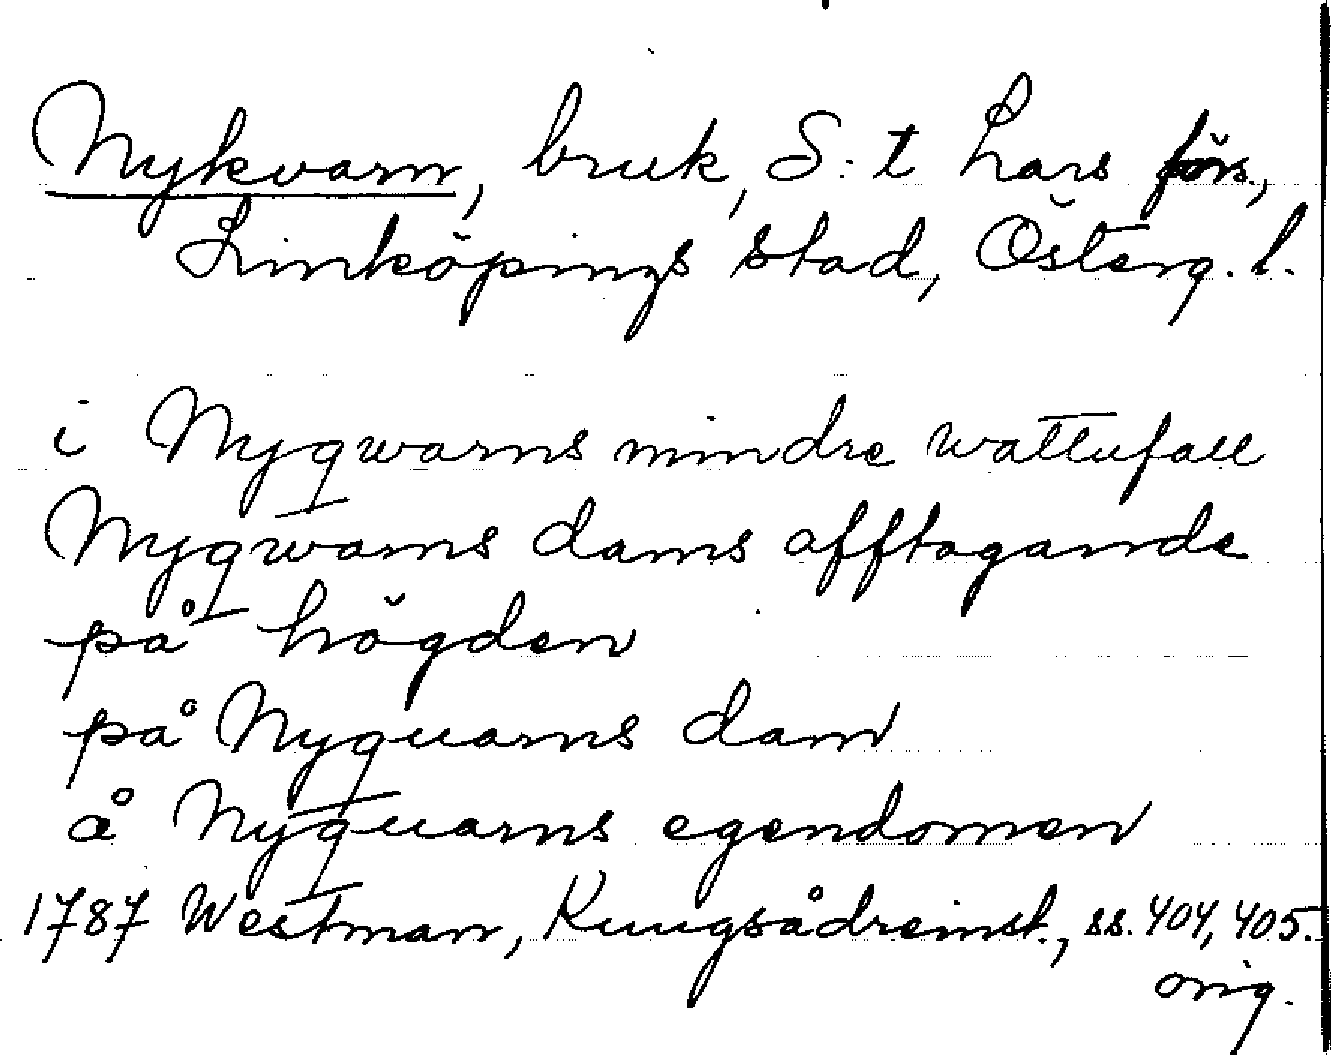 Nykvarn, bruk, S:t Lars förs.,
Linköpings stad, Österg. l.
i Nyqwarns mindre wattufall
Nyqwarns dams afftagande
på högden
på Nyquarns dam
å Nyquarns egendomen
1787 Westman, Kungsådreinst., ss. 404, 405.
orig.